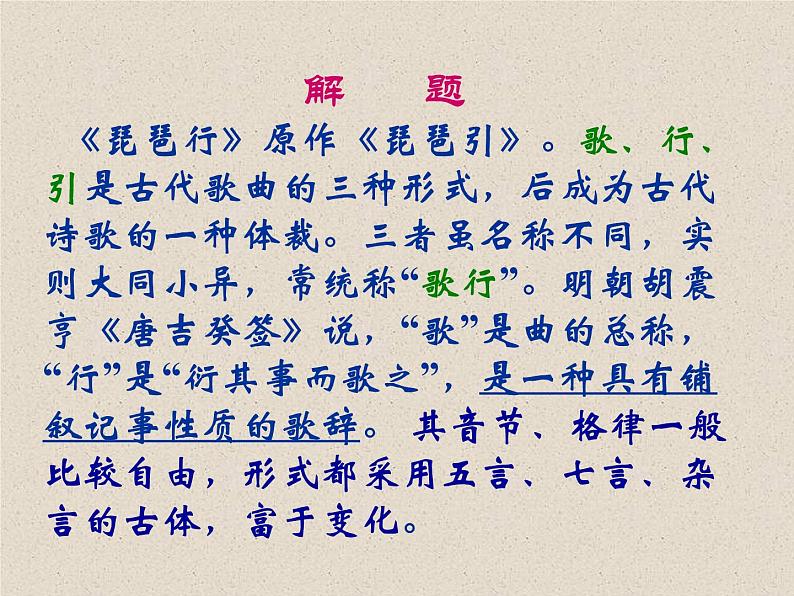 解 题
《琵琶行》原作《琵琶引》。歌、行、
引是古代歌曲的三种形式，后成为古代
诗歌的一种体裁。三者虽名称不同，实
则大同小异，常统称“歌行”。明朝胡震
亨《唐吉癸签》说，“歌”是曲的总称，
“行”是“衍其事而歌之”，是一种具有铺
叙记事性质的歌辞。其音节、格律一般
比较自由，形式都采用五言、七言、杂
言的古体，富于变化。